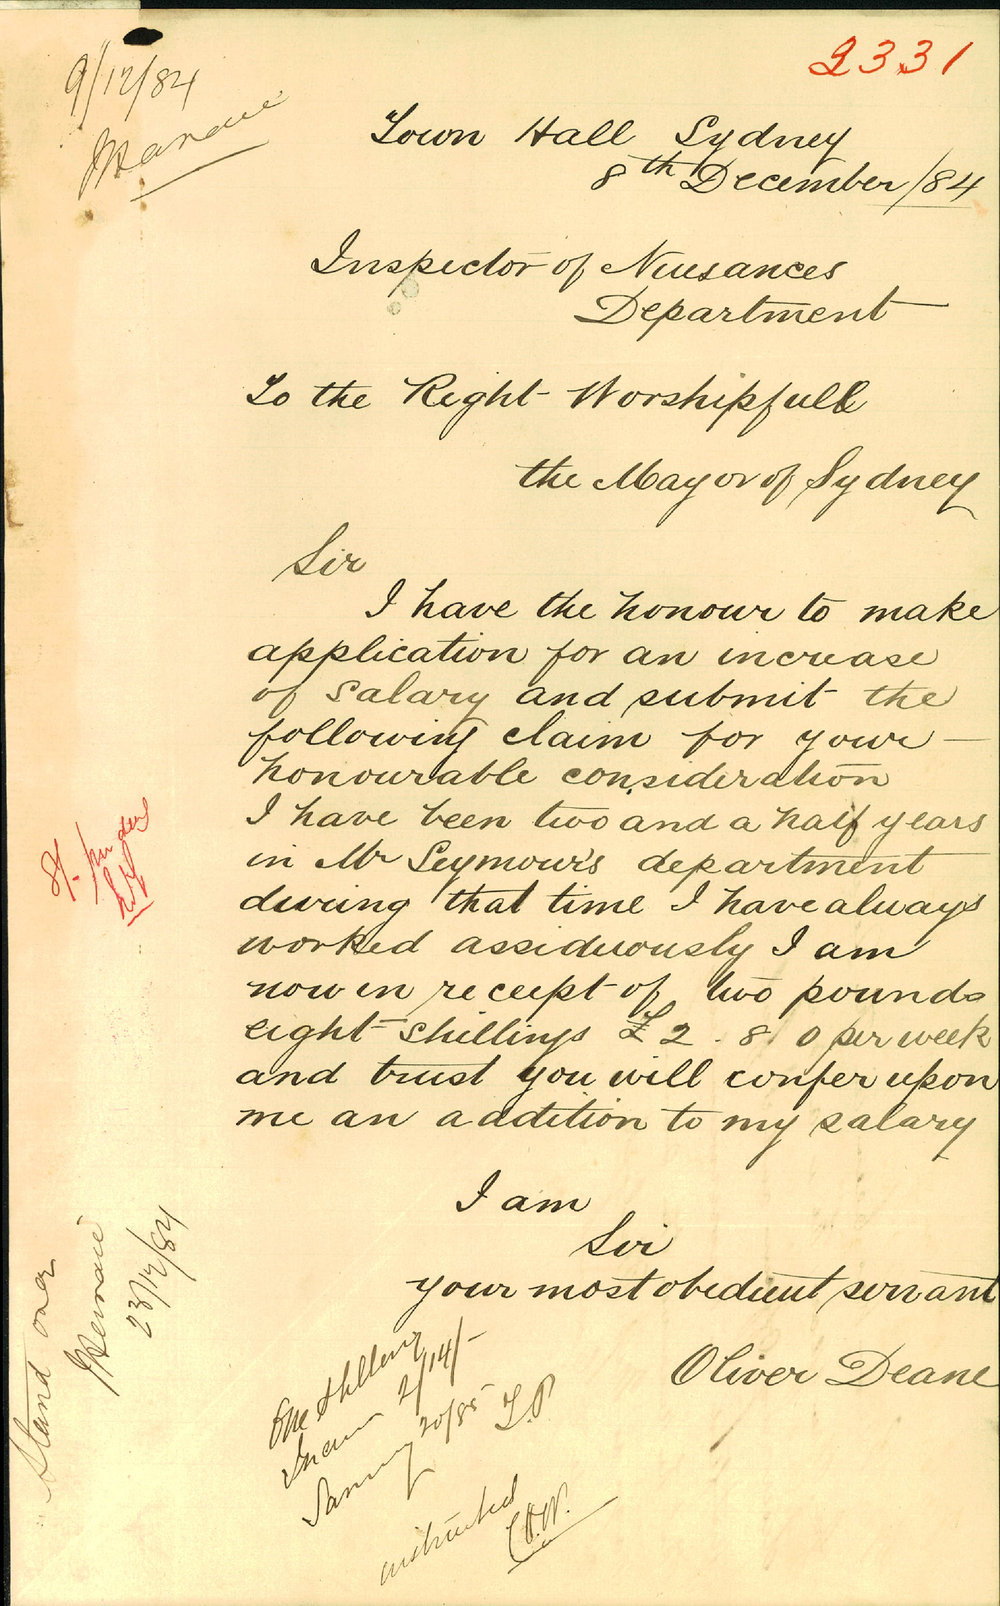 2331
9/12/84
Town Hall Sydney
8th December/84
Inspector of Niusances
Department
To the Right Worshipfull
the Mayor of Sydney
Sir
I have the honour to make
application for an increase
of salary and submit the
following claim for your
honourable consideration
I have been two and a half years
in Mr Seymour's department
during that time I have always
worked assiduously I am
now in receipt of two pounds
eight shillings £2.8.0 per week
and trust you will confer upon
me an addition to my salary
I am
Sir
your most obedient servant
Oliver Deane
Stand over
23/12/84
One shilling
2/14/-
20/85
instructed